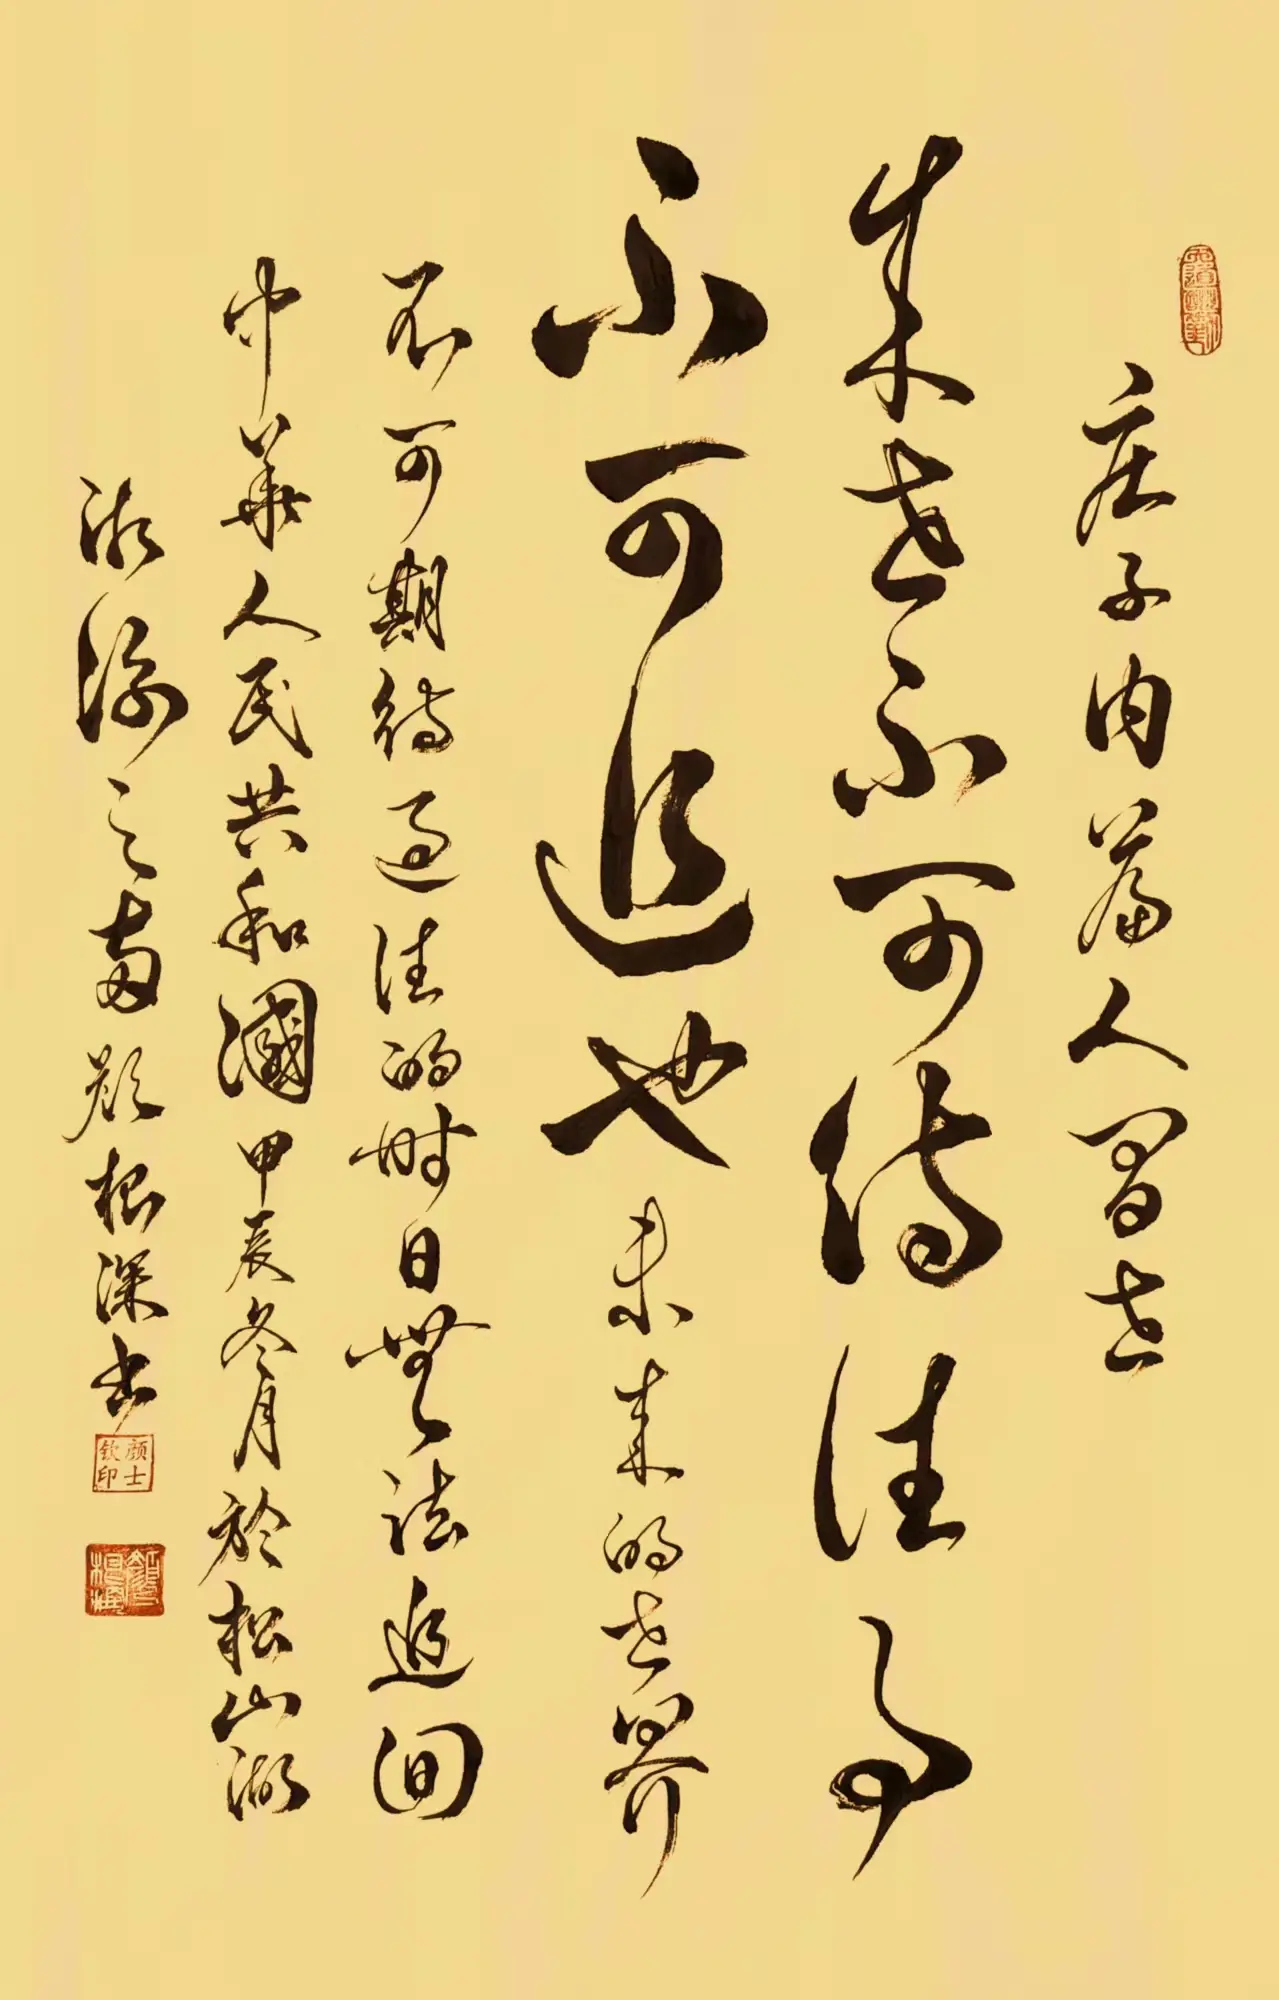 庄子内篇人间世
来世不可待往事
不可追也
未来的世界
不可期待过往的时日無法追回
中华人民共和國甲辰冬月於松山湖
之南颜根深书
颜士钦印